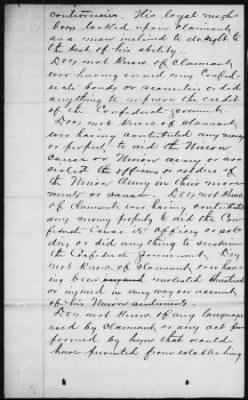 controversies. His loyal neigh-
bors looked upon claimant
as a man inclined to do right to
the best of his ability.
Does not know of claimant
ever having owned any Confed-
erate bonds or securities or did
anything to improve the credit
of the Confederate government.
Does not know of claimant
ever having contributed any money
or property to aid the Union
cause or Union army or as-
sisted the officers or soldiers of
the Union Army in their move-
ments or Does not know
of claimant ever having contributed
any money property to aid the Con-
federate Cause its officers or sol-
diers or did anything to sustain
the Confederate Government. Does
not know of claimant ever hav-
ing been molested threatened
or injured in any way on account
of his Union sentiments.
Does not know of any language
used by claimant or any act per-
formed by him that would
have prevented from establishing